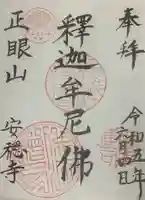 奉拝
令和五年
六月四日
釋迦牟尼佛
正眼山
安穏寺